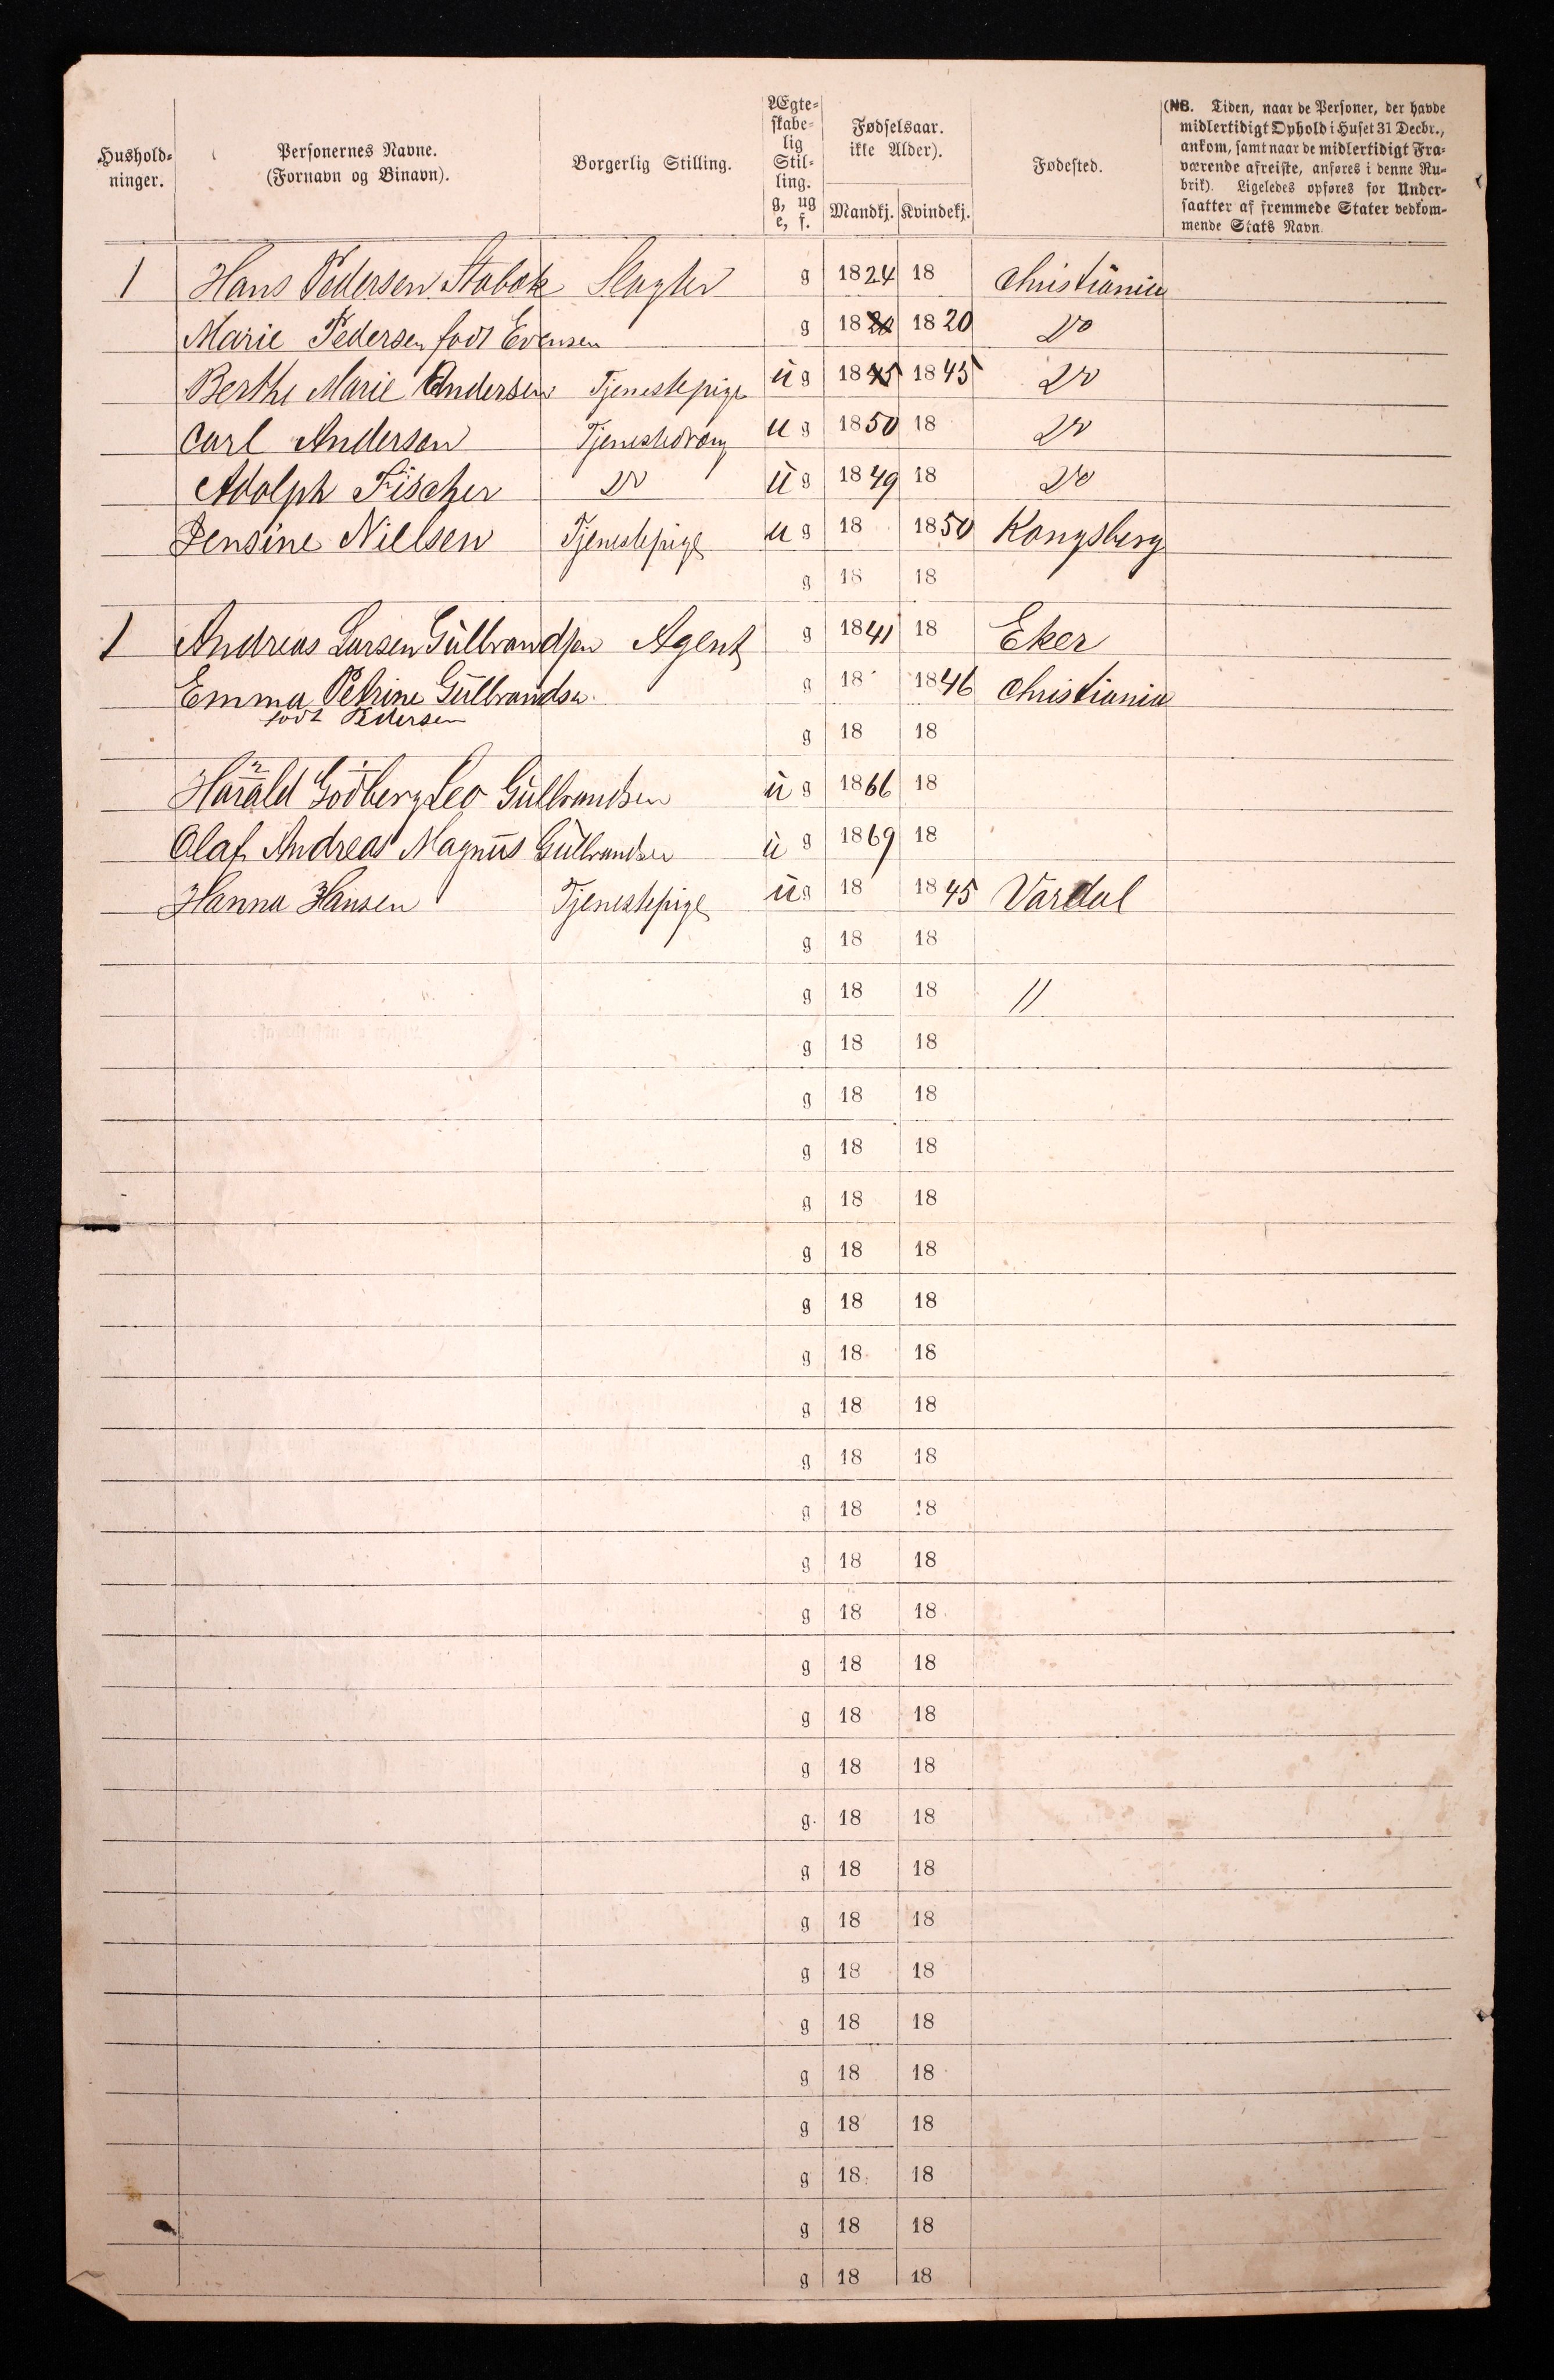 Hushold-
ninger.
Personernes Navne.
(Fornavn og Binavn).
Borgerlig Stilling.
Ægte-
skabe-
lig
Stil-
ling.
g, ug
e, f.
Fødselsaar.
ikke Alder).
Mandkj. Kvindekj.
Fødested.
(NB. Tiden, naar de Personer, der havde
midlertidigt Ophold i Huset 31 Decbr.,
ankom, samt naar de midlertidigt Fra-
værende afreiste, anføres i denne Ru-
brik). Ligeledes opføres for Under-
saatter af fremmede Stater vedkom-
mende Stats Navn.
1 Hans Pedersen Stabæk Slagter g 1824 18 Christiania
Marie Pedersen født Evensen g 1820 1820 Do
Berthe Marie Andersen Tjenestepige ug 1845 1845 Do
Carl Anderson Tjenestedreng ug 1850 18 Do
Adolph Fischer Do ug 1849 18 Do
Jensine Nielsen Tjenestepige ug 18 1850 Kongsberg
g 18 18
1 Andreas Larsen Gulbrandsen Agent g 1841 18 Eker
Emma Petrine Gulbrandsen g 18 1846 Christiania
født Pedersen
g 18 18
Harald Godberg Leo Gulbrandsen ug 1866 18
Olaf Andreas Magnus Gulbrandsen ug 1869 18
Hanna Hansen Tjenestepige ug 18 1845 Vardal
g 18 18
g 18 18 //
g 18 18
g 18 18
g 18 18
g 18 18
g 18 18
g 18 18
g 18 18
g 18 18
g 18 18
g 18 18
g 18 18
g 18 18
g 18 18
g 18 18
g 18 18
g 18 18
g 18 18
g 18 18
g 18 18
g 18 18
g 18 18
g 18 18
g 18 18
g 18 18
g 18 18